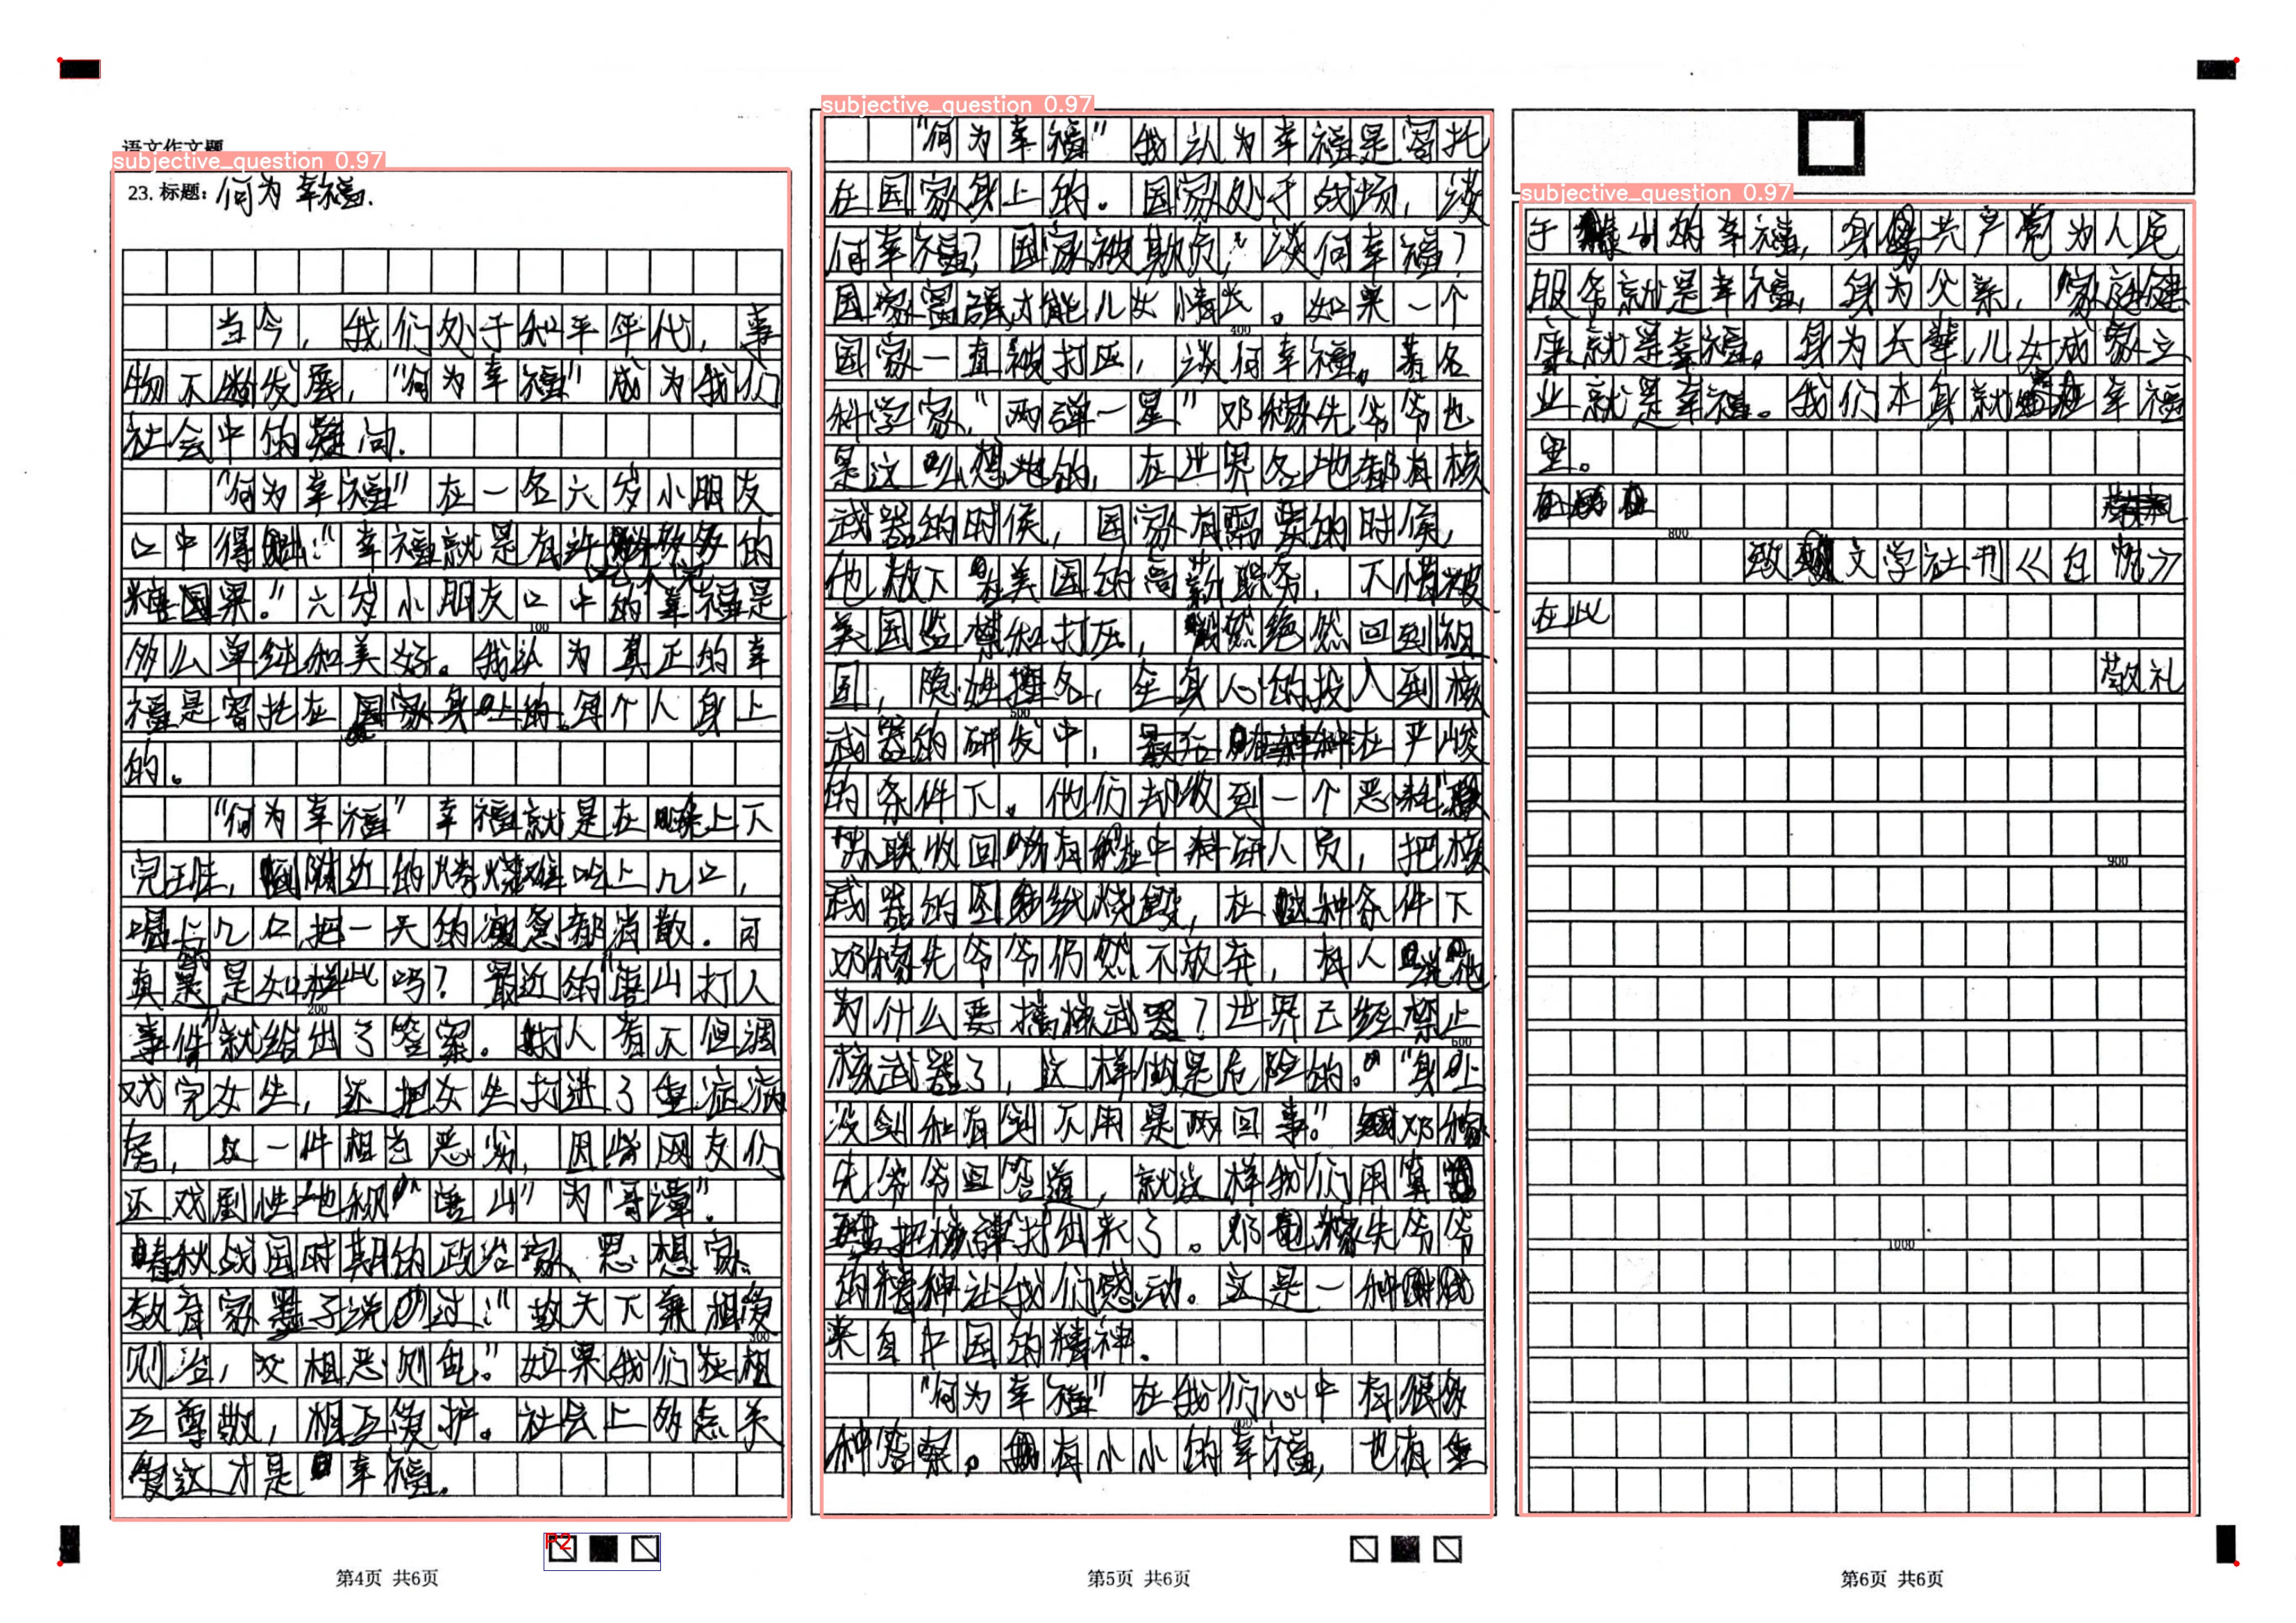 语文作文题
subjective_question 0.97
23. 标题：何为幸福.
当今，我们处于和平年代，事
物不断发展，"何为幸福"成为我们
社会中的难问.
"何为幸福"在一名六岁小朋友
口中得知："幸福就是有许多的
吃不完
糖果."六岁小朋友口中的幸福是
100
多么单纯和美好。我认为真正的幸
福是寄托在每个人身上
的。
"何为幸福"幸福就是在晚上下
完班，到附近的烧烤摊吃上几口，
喝上几口把一天的疲惫都消散.可
真的是如此吗？最近的"唐山打人
200
事件"就给出了答案。打人者不但调
戏完女生，还把女生打进了重症病
房，这一件相当恶劣，因此网友们
还戏剧性地称"唐山"为"哥谭".
春秋战国时期的政治家、思想家、
教育家墨子说过："故天下兼相爱
300
则治，交相恶则乱."如果我们在相
互尊敬，相互爱护。社会上多点关
爱这才是幸福.
第4页 共6页
subjective_question 0.97
"何为幸福"我认为幸福是寄托
在国家身上的。国家处于战场，谈
何幸福？国家被欺负，谈何幸福？
国家富强才能儿女情长。如果一个
400
国家一直被打压，谈何幸福。著名
科学家，"两弹一星"邓稼先爷爷也
是这么想地的，在世界各地都有核
武器的时侯，国家有需要的时侯，
他放下在美国的高薪职务，不惜被
美国监禁和打压，毅然绝然回到祖
国，隐姓埋名，全身心的投入到核
500
武器的研发中，在严峻
的条件下。他们却收到一个恶耗
苏联收回所有在中科研人员，把核
武器的图纸烧毁，在这种条件下
邓稼先爷爷仍然不放弃，有人说他
为什么要搞核武器？世界已经禁止
600
核武器了，这样做是危险的。""身上
没剑和有剑不用是两回事."邓稼
先爷爷回答道，就这样我们用算
盘把核弹打出来了。邓稼先爷爷
的精神让我们感动。这是一种
来自中国的精神.
"何为幸福"在我们心中有很多
700
种答案。有小小的幸福，也有
第5页 共6页
subjective_question 0.97
于的幸福，身为共产党为人民
服务就是幸福，身为父亲，家庭健
康就是幸福。身为长辈儿女成家立
业就是幸福。我们本身就在幸福
里。
800
致文学社刊《白帆》
在此
敬礼
900
1000
第6页 共6页